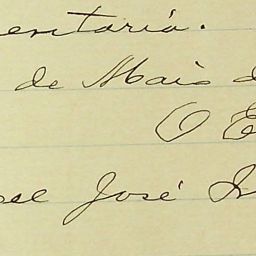 entaria.
de Maio d
O E
el José